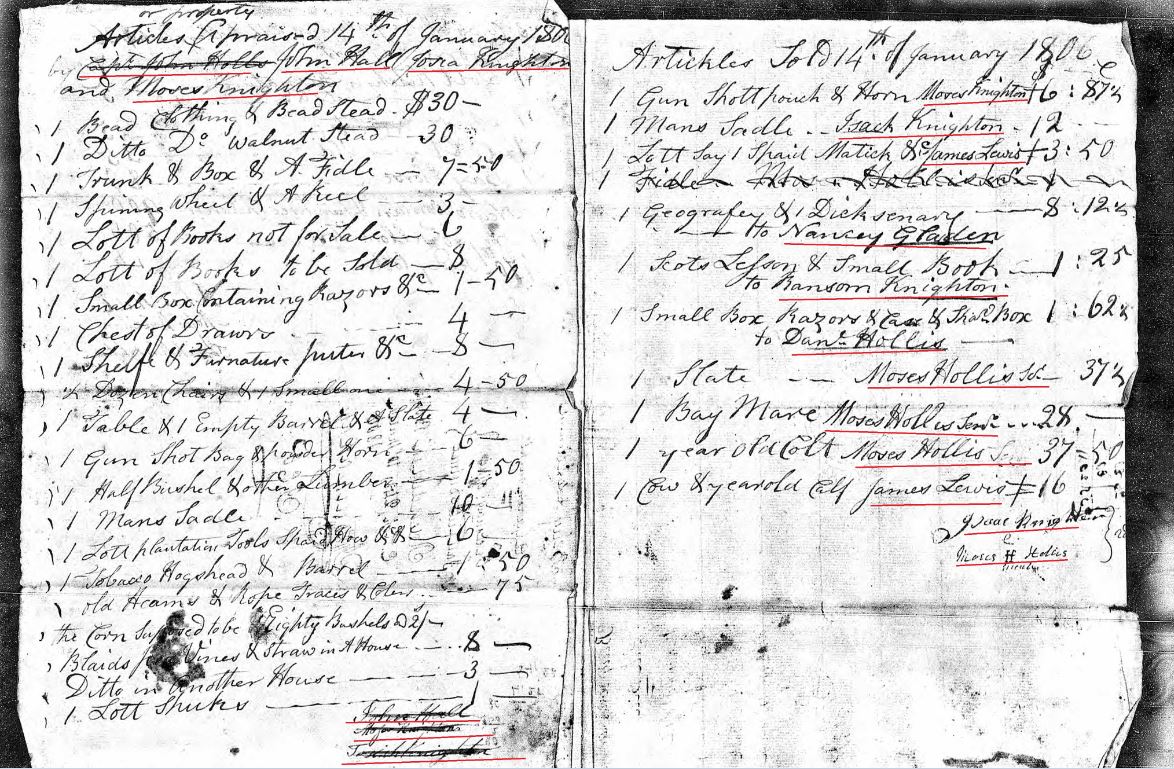 or property
Articles Apraised 14th of January 1806
by Capt John Hollis John Hall Josia Knighton
and Moses Knighton
1 Bead Clothing & Bead Stead - $30 -
1 Ditto Do Walnut Stead - 30
1 Trunk & Box & A Fidle - 7=50
1 Spining Wheel & A Reel - 3 -
1 Lott of Books not for Sale - 6
1 Lott of Books to be Sold - 8
1 Small Box Containing Razors &c - 1-50
1 Chest of Drawrs - 4 -
1 Shelfe & Furnature puter &c - 8 -
½ Dozen Chairs & 1 Small 4-50
1 Table & 1 Empty Barrel & Slate 4 -
1 Gun Shot Bag & powder Horn - 6 -
1 Half Bushel & other Lumber - 1-50
1 Mans Sadle - 10
1 Lott plantation Tools Spaid How &c - 6
1 Tobacco Hogshead & Barrel - 1-50
old Heams & Rope Traces & - 75
the Corn Suposed to be Eighty Bushels @ 2/-
Blaids Vines & Straw in A House - 8 -
Ditto in Another House - 3 -
1 Lott Shuks - 1
John Hall
Moses Knighton
Josiah Knighton
Artickles Sold 14th of January 1806
1 Gun Shott pouch & Horn Moses Knighton 6:87½
1 Mans Sadle - Isack Knighton - 12
1 Lott Say 1 Spaid Matick &c James Lewis 3:50
1 Fidle
1 Geografey & 1 Dicksenary - 8:12½
to Nancey Gladen
1 Scots Lesson & Small Book - 1:25
to Ransom Knighton
1 Small Box Razors & Case & Box 1:62½
to Danl Hollis
1 Slate - Moses Hollis Sr - 37½
1 Bay Mare Moses Hollis Senr - 28 -
1 year old Colt Moses Hollis Sr 37-50
1 Cow & year old Calf James Lewis 16
Isaac Knighton
Moses H Hollis